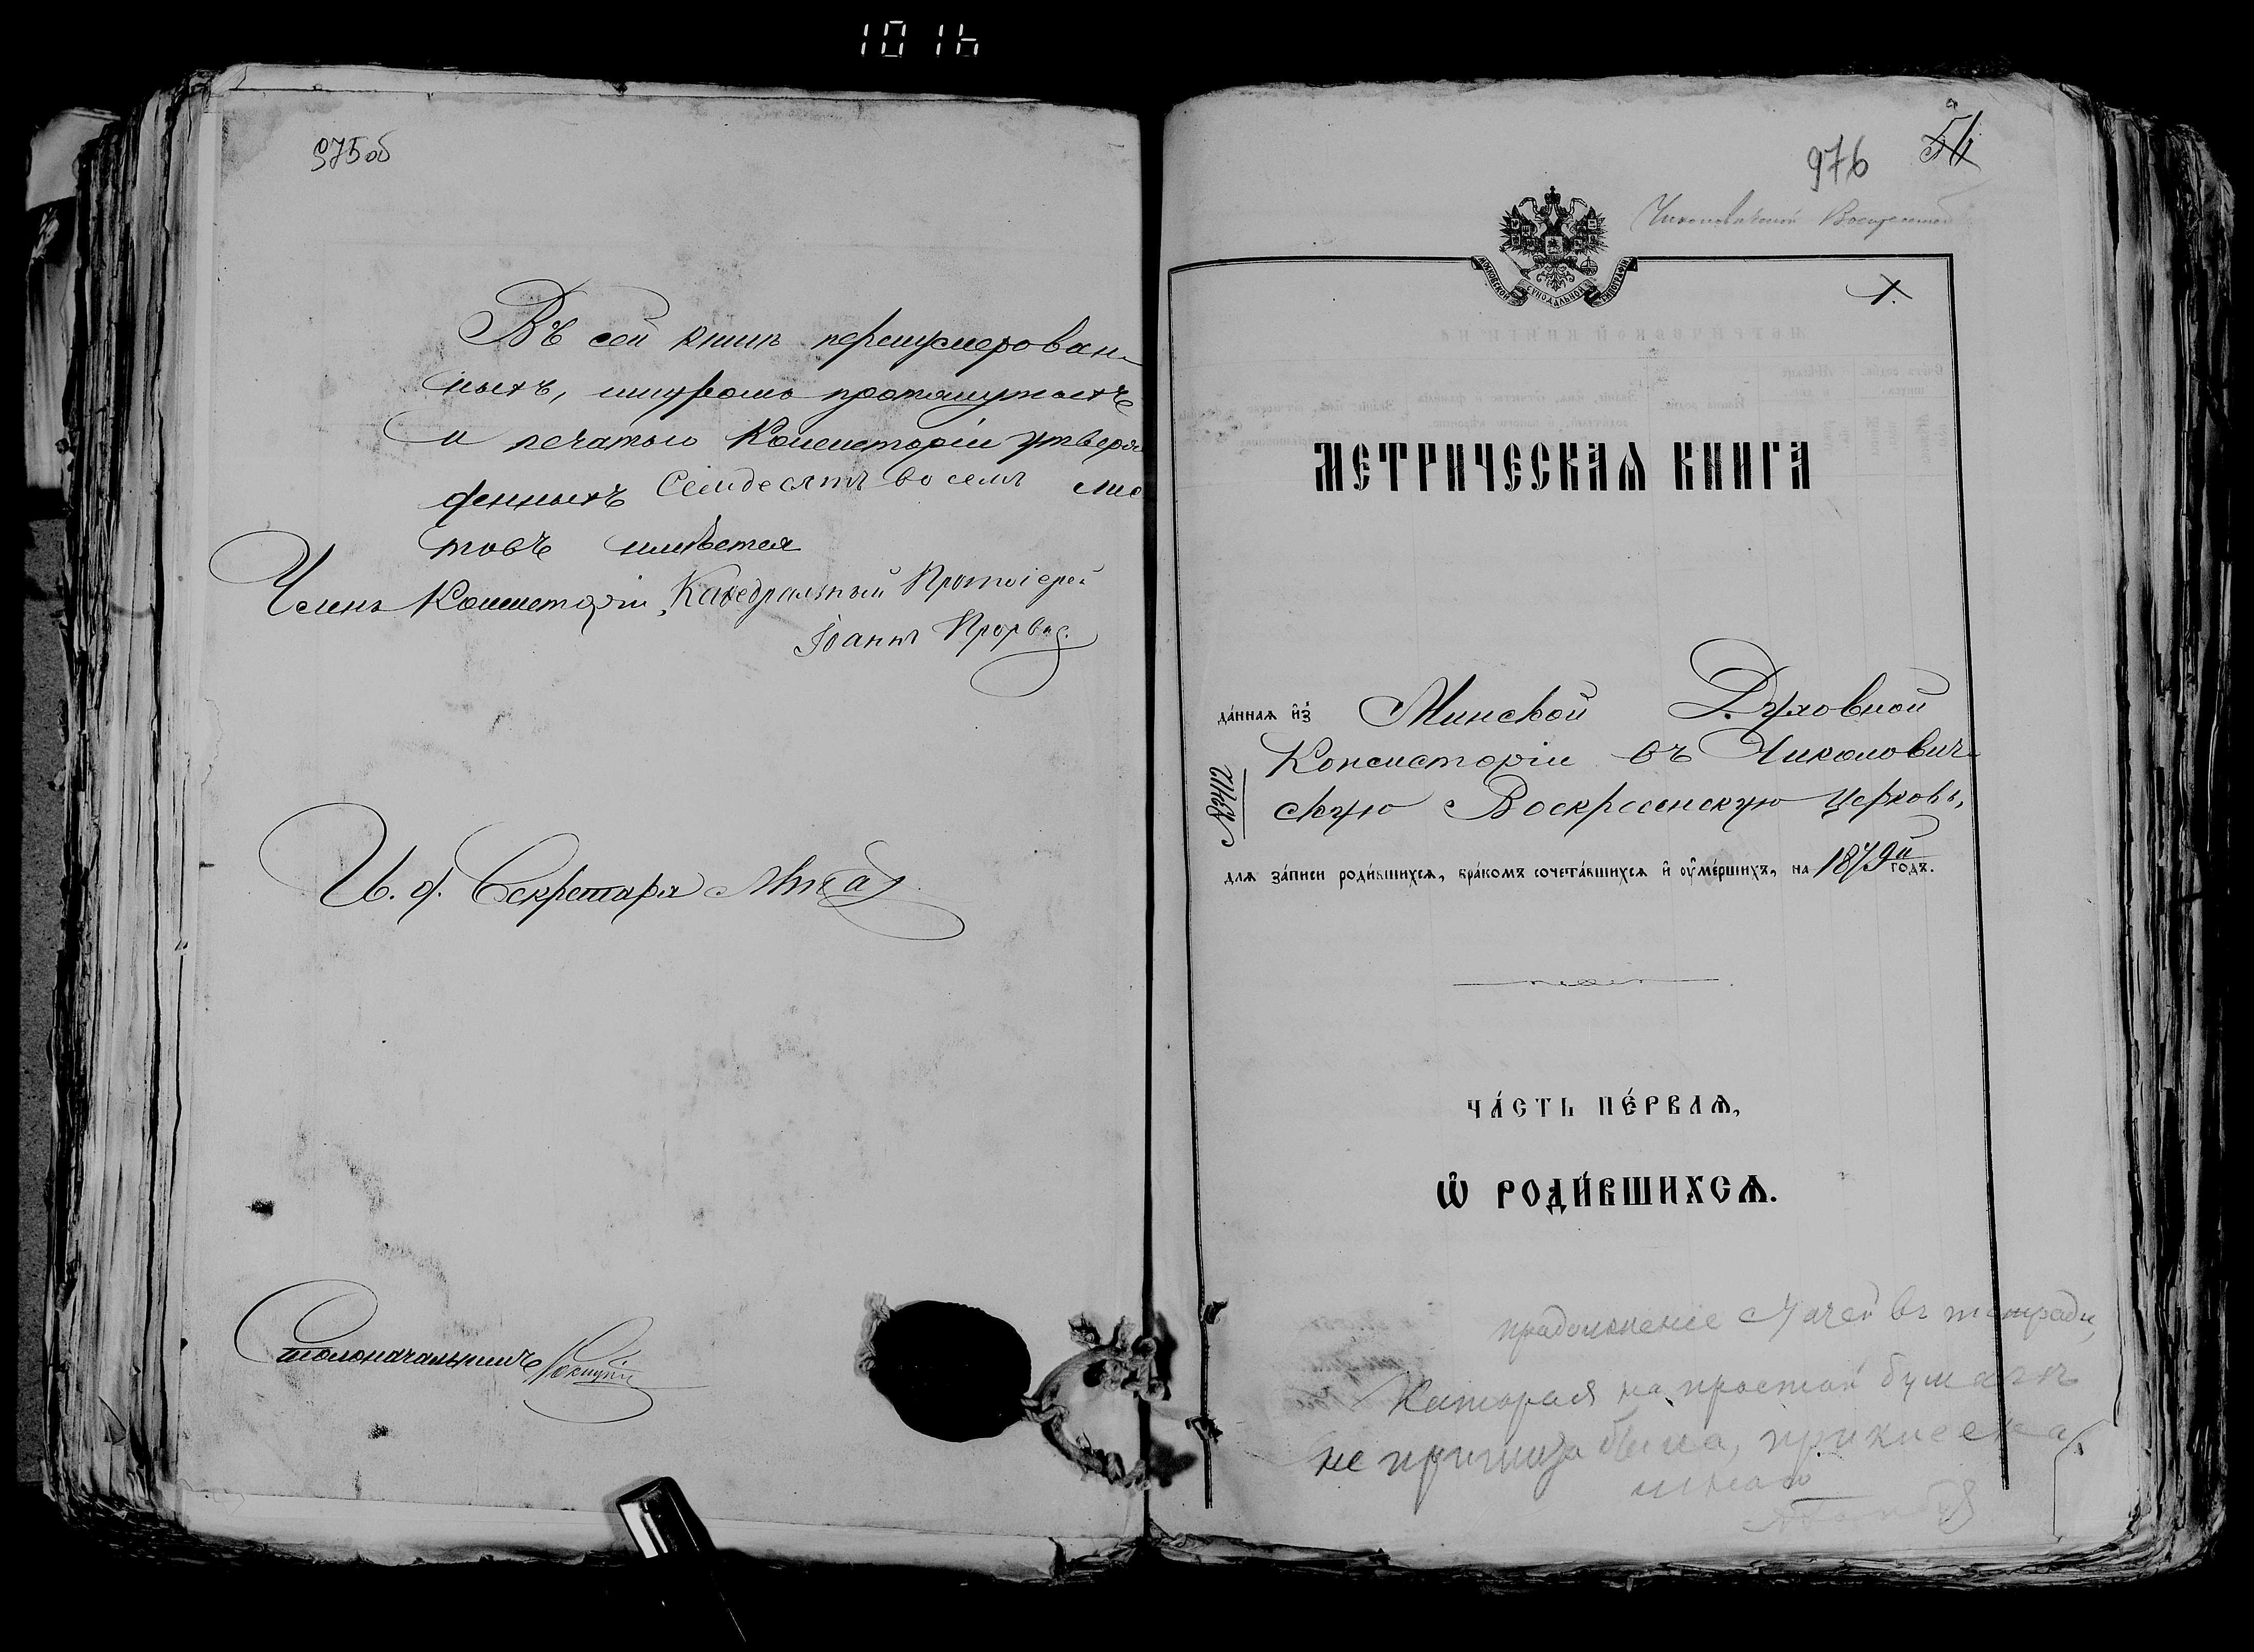 1016
975об
Въ сей книгѣ перенумерован-
ныхъ, шнуромъ протянутыхъ
и печатью Консисторіи утверж
денныхъ Семдесятъ восемъ лис
товъ имѣется
Членъ Консисторіи, Каѳедральный Протоіерей
Іоаннъ
И. д. Секретаря
Столоначальникъ
976 51
Воскресенской
МОСКОВСКОЙ СѴНОДАЛЬНОЙ ТИПОГРАФІИ
1.
МЕТРИЧЕСКАѦ КНИГА
да́ннаѧ и҆з̾ Минской Духовной
Консисторіи въ Чиколович-
скую Воскресенскую церковь,
№ 3412
длѧ за́писи роди́вшихсѧ, бра́комъ сочета́вшихсѧ и҆ оу҆ме́ршихъ, на 1879й годъ.
ЧА́СТЬ ПЕ́РВАѦ,
Ѡ҆ РОДИ́ВШИХСѦ.
продолженіе статей въ тетради,
которая на простой бумагѣ
не пришита была, приклеена
мною